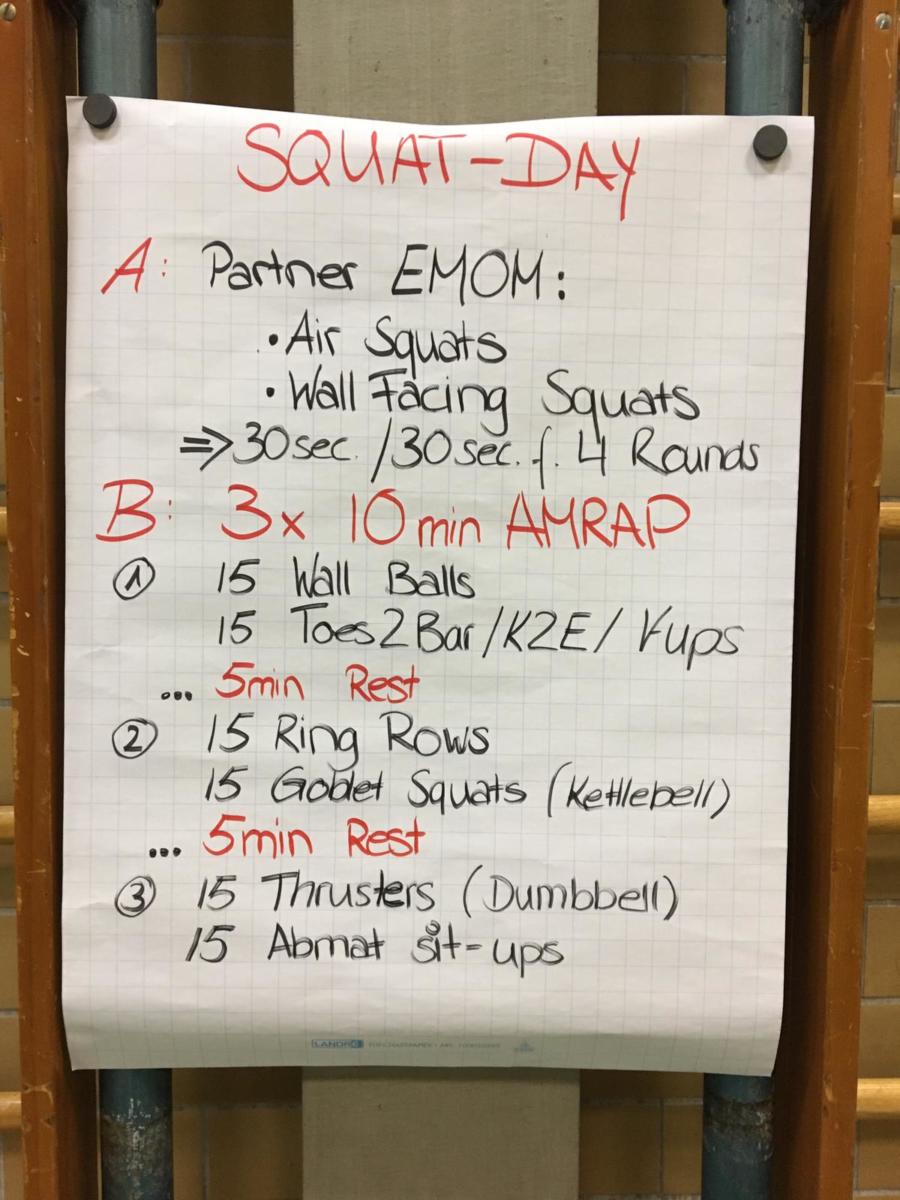 SQUAT-DAY
A: Partner EMOM:
• Air Squats
• Wall Facing Squats
⇒ 30sec. / 30sec. f. 4 Rounds
B: 3x 10min AMRAP
① 15 Wall Balls
15 Toes2Bar / K2E / Vups
... 5min Rest
② 15 Ring Rows
15 Goblet Squats (Kettlebell)
... 5min Rest
③ 15 Thrusters (Dumbbell)
15 Abmat sit-ups
LANDRÉ